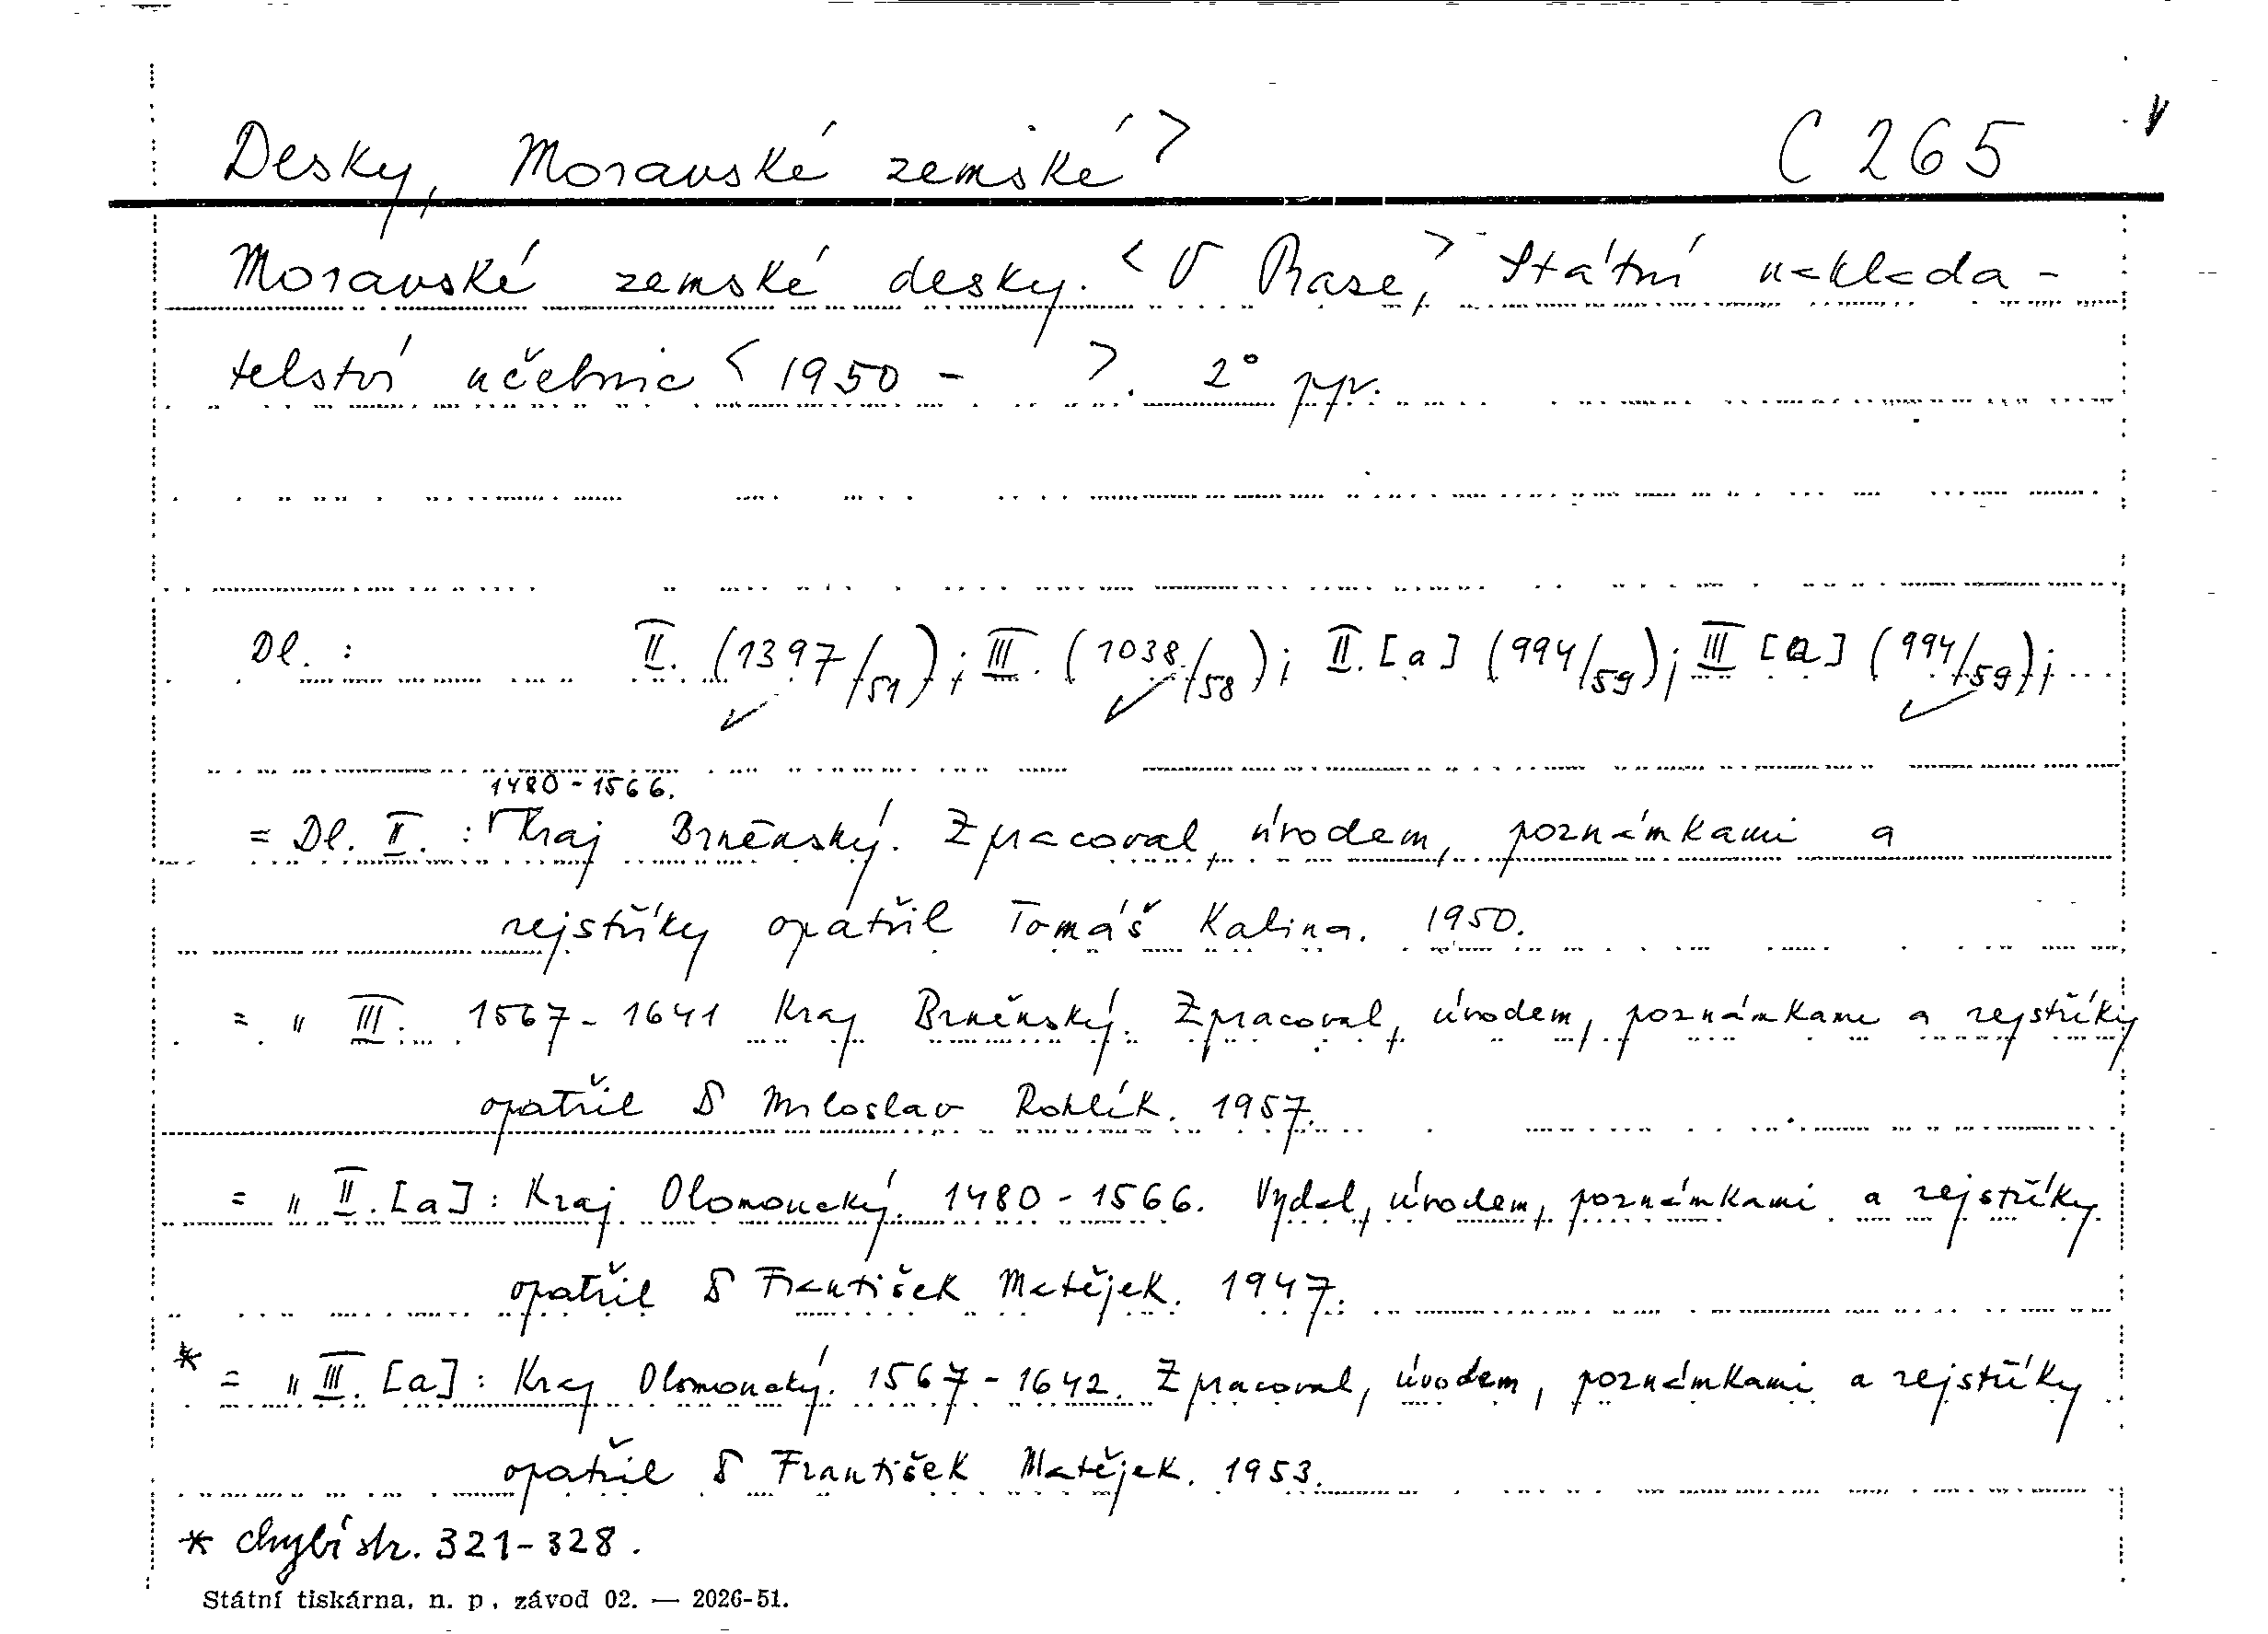 Desky, Moravské zemské> C 265
Moravské zemské desky. <V Praze,> Státní naklada-
telství učebnic <1950 - >. 2° ppv.
Dl. : II. (1397/51); III. (1038/58); II. [a] (994/59); III [a] (994/59);
1480-1566.
= Dl. II. : Kraj Brněnský. Zpracoval, úvodem, poznámkami a
rejstříky opatřil Tomáš Kalina. 1950.
= " III. 1567-1641 Kraj Brněnský. Zpracoval, úvodem, poznámkami a rejstříky
opatřil Miloslav Rohlík. 1957.
= " II. [a] : Kraj Olomoucký. 1480-1566. Vydal, úvodem, poznámkami a rejstříky
opatřil František Matějek. 1947.
* = " III. [a] : Kraj Olomoucký. 1567-1642. Zpracoval, úvodem, poznámkami a rejstříky
opatřil František Matějek. 1953.
* chybí str. 321-328.
Státní tiskárna, n. p., závod 02. — 2026-51.